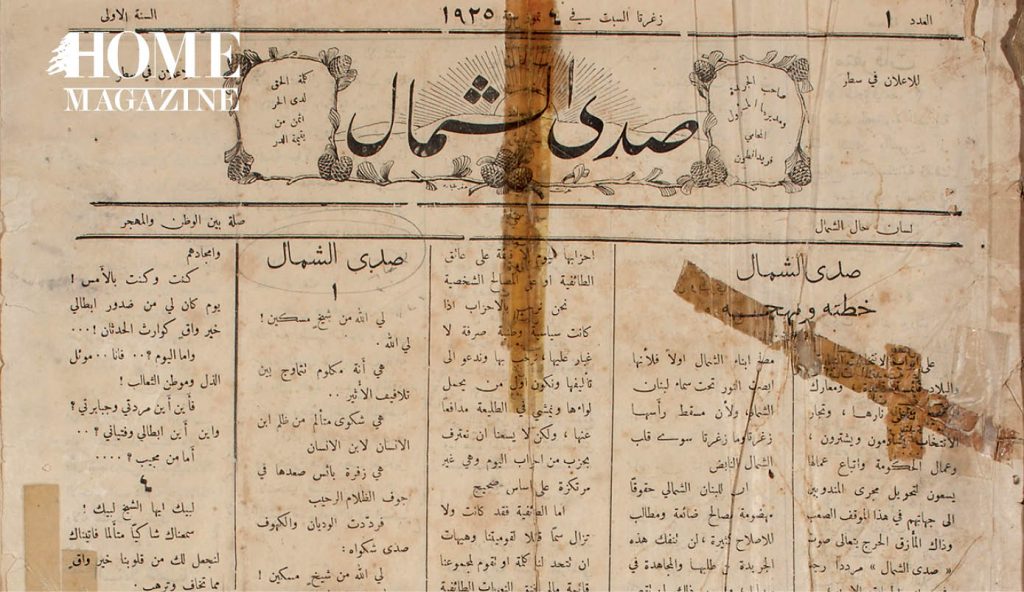 HOME
MAGAZINE
العدد ١
زغرتا السبت في ٤ تموز سنة ١٩٢٥
السنة الاولى
للاعلان في سطر
صاحب الجريدة
ومديرها المسؤول
المحامي
فريد انطون
صدى الشمال
كلمة الحق
لدى الحر
اثمن من
يتيمة الدهر
للاعلان في سطر
لسان حال الشمال
صلة بين الوطن والمهجر
صدى الشمال
خطته ومنهجه
على ابواب الانتخابات النيابية
والبلاد
ومعارك
نارها ، وتجار
الانتخاب يساومون ويشترون ،
وعمال الحكومة واتباع عمالها
يسعون لتحويل مجرى المندوبين
الى جهاتهم في هذا الموقف الصعب
وذاك المأزق الحرج يتعالى صوت
« صدى الشمال » مردداً
ابناء الشمال اولاً فلأنها
ابصرت النور تحت سماء لبنان
الشمالي ولأن مسقط رأسها
زغرتا وما زغرتا سوى قلب
الشمال النابض
ان للبنان الشمالي حقوقاً
مهضومة مصالح ضائعة ومطالب
للاصلاح كثيرة ، لن تنفك هذه
الجريدة عن طلبها والمجاهدة في
احزابها اليوم لا قيمة على عاتق
الطائفية او على المصالح الشخصية
نحن نرحب بالاحزاب اذا
كانت سياسية وطنية صرفة لا
غبار عليها ، نرحب بها وندعو الى
تأليفها ونكون اول من يحمل
لواءها ويمشي في الطليعة مدافعاً
عنها ، ولكن لا يسعنا ان نعترف
بحزب من احزاب اليوم وهي غير
مرتكزة على اساس صحيح
اما الطائفية فقد كانت ولا
تزال سماً قاتلاً لقوميتنا وهيهات
ان تتحد لنا كلمة او تقوم لمجموعنا
قائمة
النعرات الطائفية
صدى الشمال
١
لي الله من شيخ مسكين !
لي الله .
هي أنة مكلوم تتماوج بين
تلافيف الأثير ..
هي شكوى متألم من ظلم ابن
الانسان لابن الانسان
هي زفرة بائس صعدها في
جوف الظلام الرحيب
فرددت الوديان والكهوف
صدى شكواه :
لي الله من شيخ مسكين !
وامجادهم
كنت وكنت بالأمس !
يوم كان لي من صدور ابطالي
خير واق كوارث الحدثان ! ...
واما اليوم ؟ .. فانا .. موئل
الذل وموطن الثعالب !
فأين أين مردتي وجبابرتي ؟
واين أين ابطالي وفتياني ؟ ..
أما من مجيب ؟ ....
٤
لبيك ايها الشيخ لبيك !
سمعناك شاكياً متألماً فاتيناك
لنجعل لك من قلوبنا خير واق
مما تخاف وترهب .